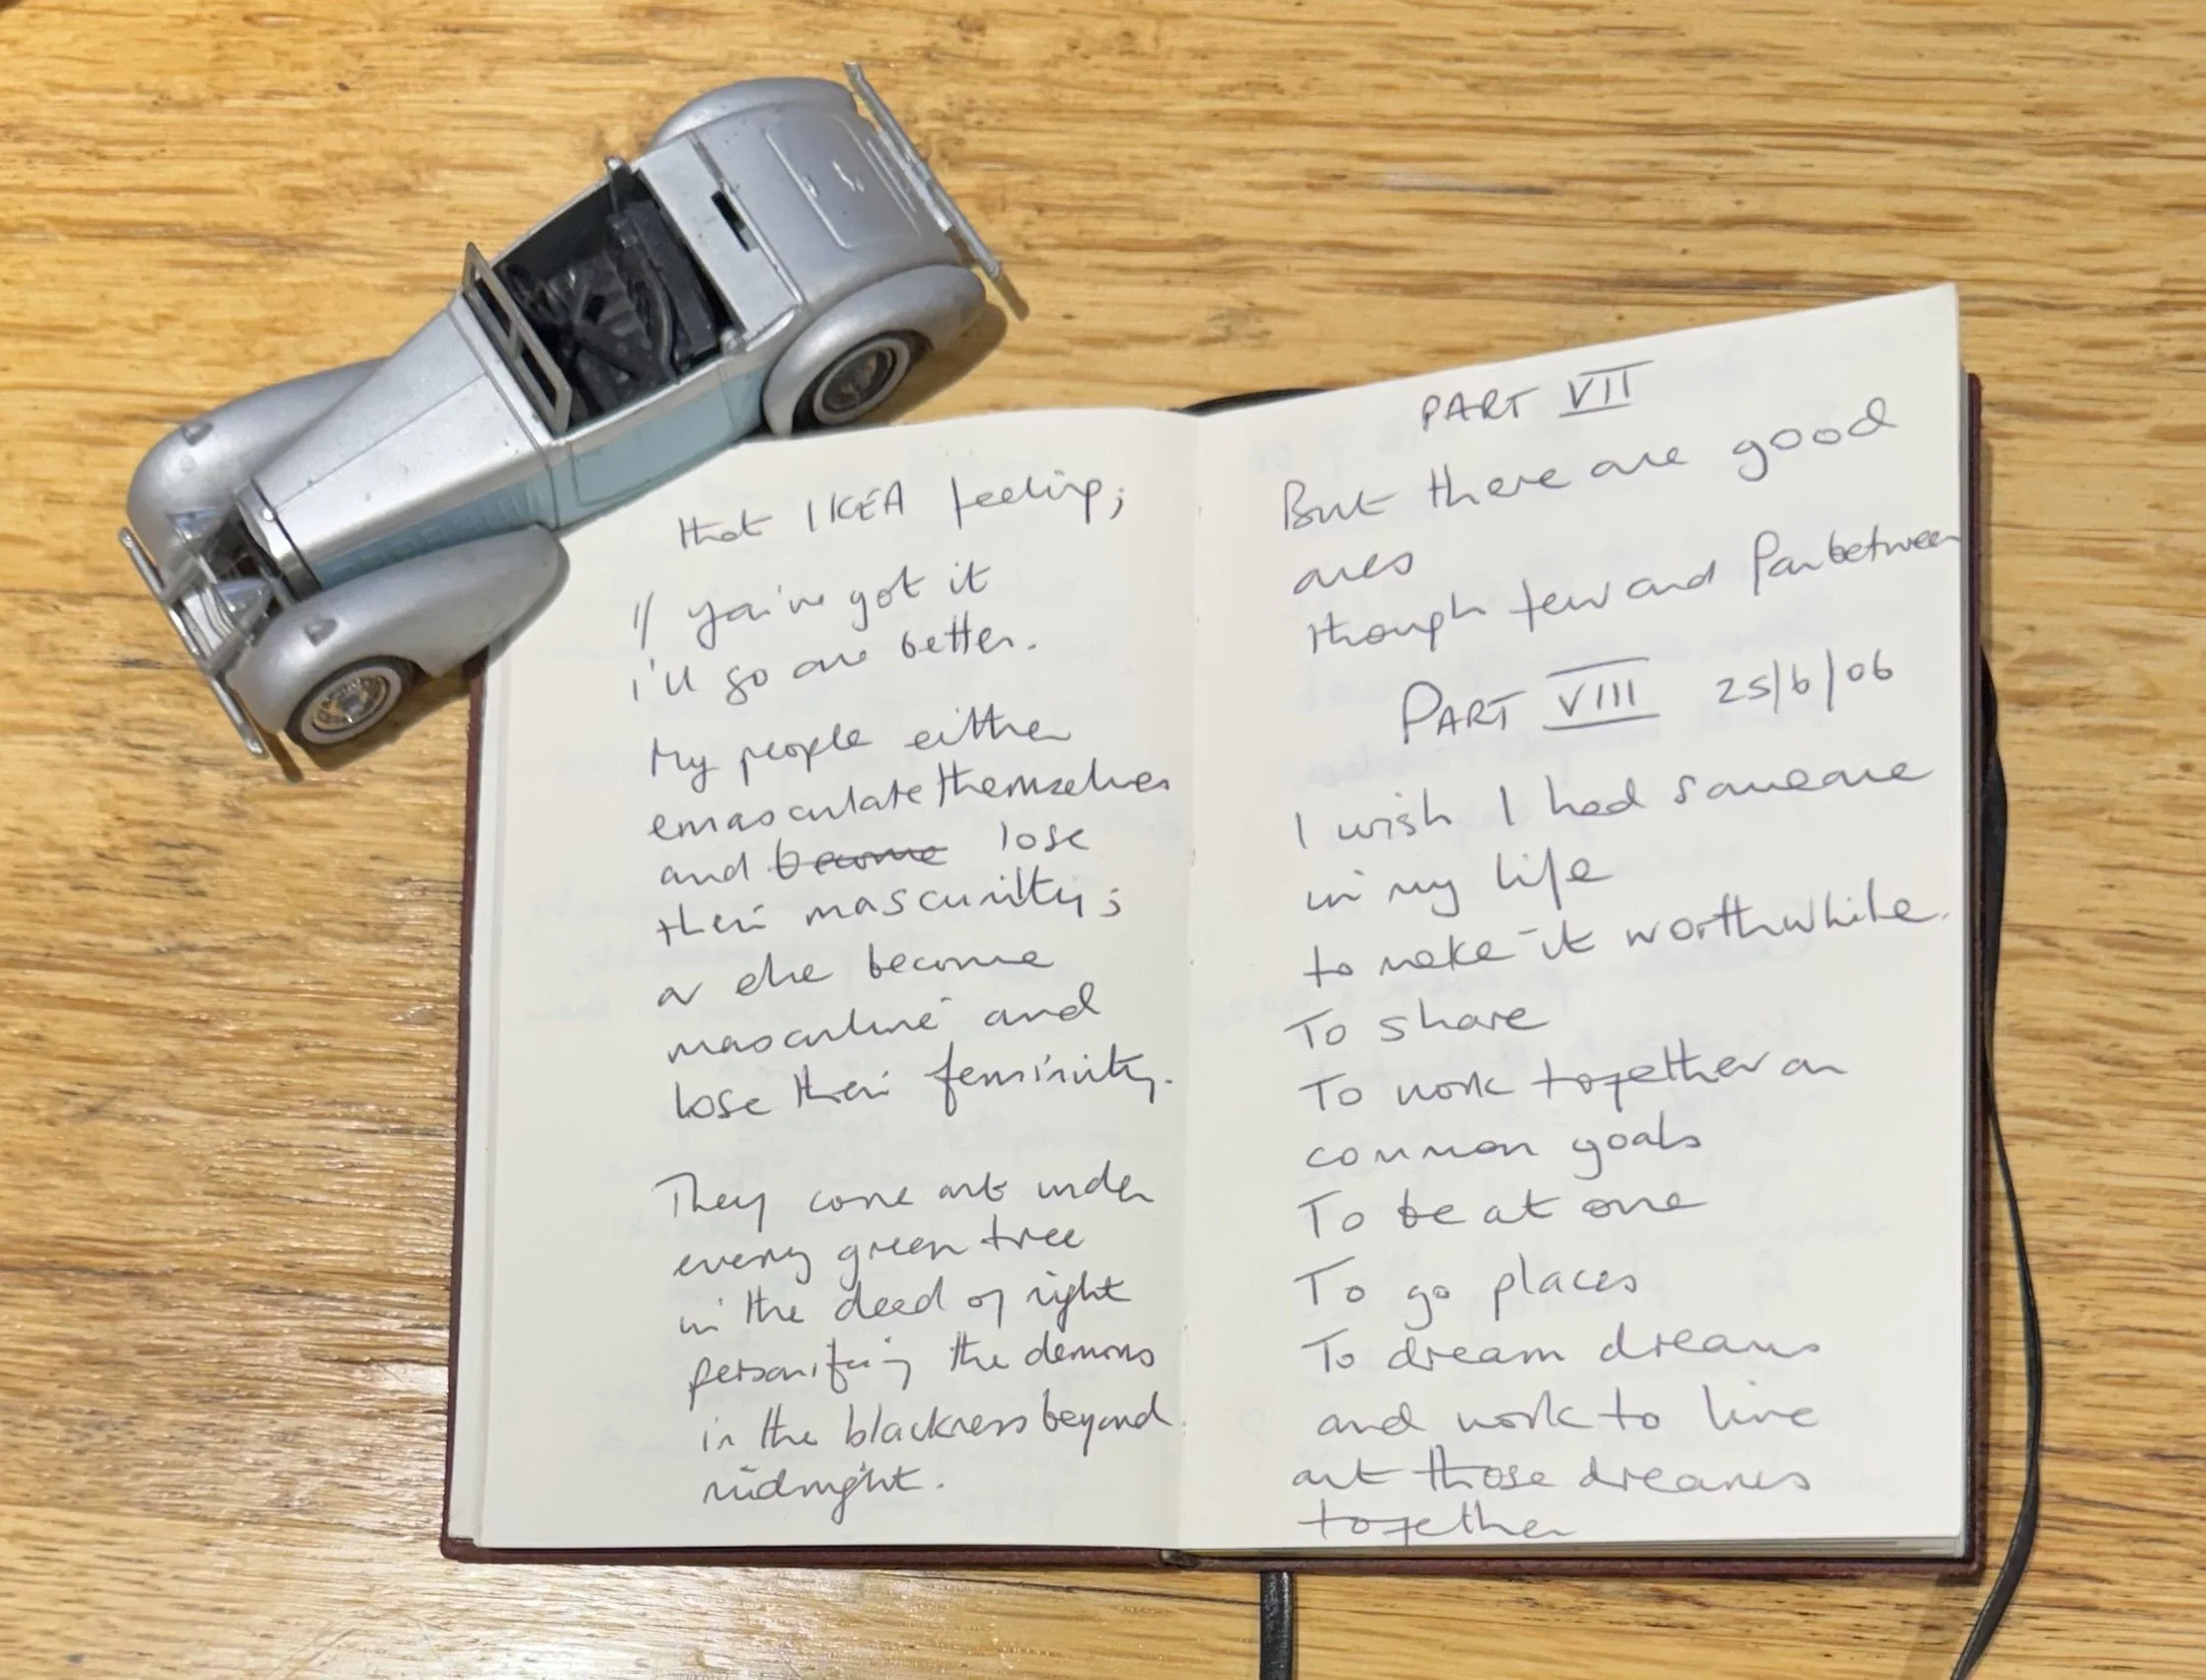 that IKEA feeling;
if you've got it
i'll go one better.
My people either
emasculate themselves
and become lose
their mascunilty;
or else become
masculine and
lose their femininity.
They come out under
every green tree
in the dead of night
personifying the demons
in the blackness beyond
midnight.
PART VII
But there are good
ones
though few and far between
PART VIII 25/6/06
I wish I had someone
in my life
to make it worthwhile.
To share
To work together on
common goals
To be at one
To go places
To dream dreams
and work to live
out those dreams
together